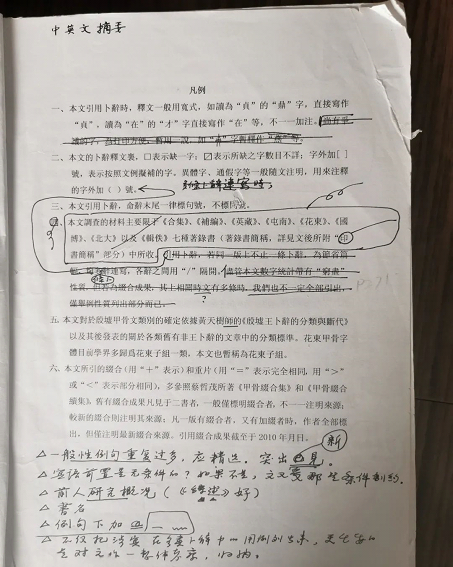 中英文摘要
凡例
一、本文引用卜辭時，釋文一般用寬式，如讀為“貞”的“鼎”字，直接寫作
“貞”，讀為“在”的“才”字直接寫作“在”等，不一一加注。
二、本文的卜辭釋文裏，□表示缺一字；☑表示所缺之字數目不詳；字外加[ ]
號，表示按照文例擬補的字。異體字、通假字等一般隨文注明，用來注釋
的字外加（ ）號。
三、本文引用卜辭，命辭末尾一律標句號，不標問號。
本文調查的材料主要限于《合集》、《補編》、《英藏》、《屯南》、《花東》、《國
博》、《北大》以及《輯佚》七種著錄書（著錄書簡稱，詳見文後所附“印
書簡稱”部分）中所收
引用卜辭，若同一版上不止一條卜辭，為節省篇
各辭之間用“/”隔開。儘管本文數字統計帶有“窮盡”
性質，但若為綴合成果，其上相同時文有多條時，我們也不一定全部引出，
僅舉例性質列出部分而已。
五、本文對於殷墟甲骨文類別的確定依據黃天樹師的《殷墟王卜辭的分類與斷代》
以及其後發表的關於各類舊有非王卜辭的文章中的分類標準。花東甲骨字
體目前學界多歸爲花東子組一類，本文也暫稱為花東子組。
六、本文所引的綴合（用“+”表示）和重片（用“=”表示完全相同，用“>”
或“<”表示部分相同），多參照蔡哲茂所著《甲骨綴合集》和《甲骨綴合
續集》，舊有綴合成果凡見于二書者，一般僅標明綴合者，不一一注明來源；
較新的綴合則注明其來源；凡一版有綴合者，又有加綴者時，作者全部標
出，但僅注明最新綴合來源。引用綴合成果截至于2010年月日。
新
△一般性例句重复过多，应精选。突出己見。
△宾语前置是无条件的？如果不是，又受哪些条件制约。
△前人研究概况（
好）
△署名
△例句下加